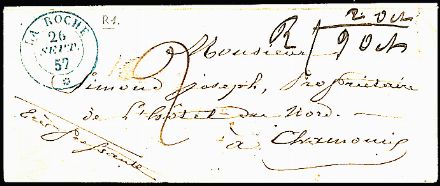 LA ROCHE
26
SEPT.
57
R1.
R
2 Oct
9 Oct
2
Monsieur
Simond Joseph, Propriétaire
de l'hotel du Nord.
à Chamounix